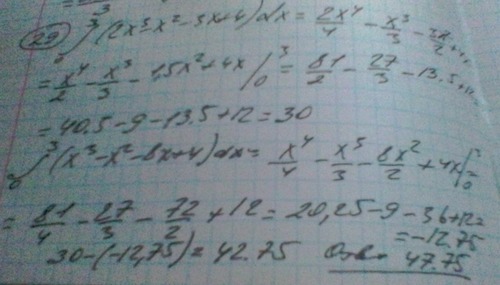 29) ∫₀³ (2x³-x²-3x+4)dx = 2x⁴/4 - x³/3 - 3x²/2 + 4x
= x⁴/2 - x³/3 - 1,5x² + 4x |₀³ = 81/2 - 27/3 - 13.5 + 12
= 40.5 - 9 - 13.5 + 12 = 30
∫₀³ (x³-x²-8x+4)dx = x⁴/4 - x³/3 - 8x²/2 + 4x |₀³
= 81/4 - 27/3 - 72/2 + 12 = 20,25 - 9 - 36 + 12 =
= -12,75
30 - (-12,75) = 42.75 Отв. 47.75